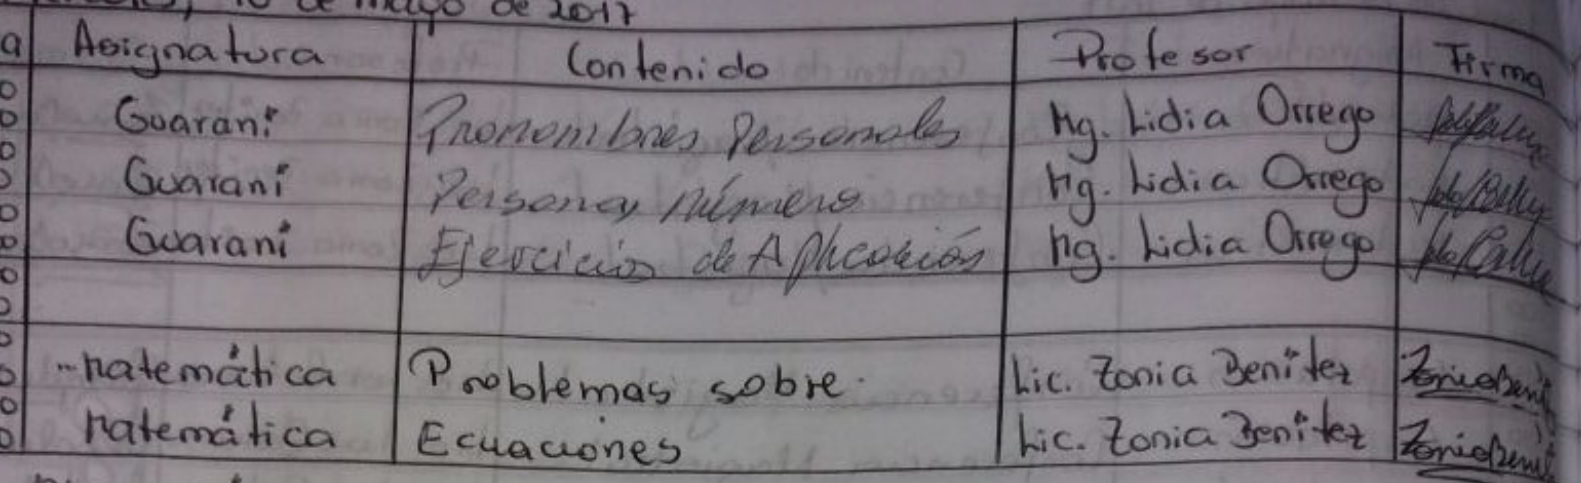 10 de mayo de 2017
Asignatura Contenido Profesor Firma
Guaraní Pronombres Personales Mg. Lidia Orrego
Guaraní Persona y número Mg. Lidia Orrego
Guaraní Ejercicios de Aplicación Mg. Lidia Orrego
Matemática Problemas sobre Lic. Zonia Benítez
Matemática Ecuaciones Lic. Zonia Benítez